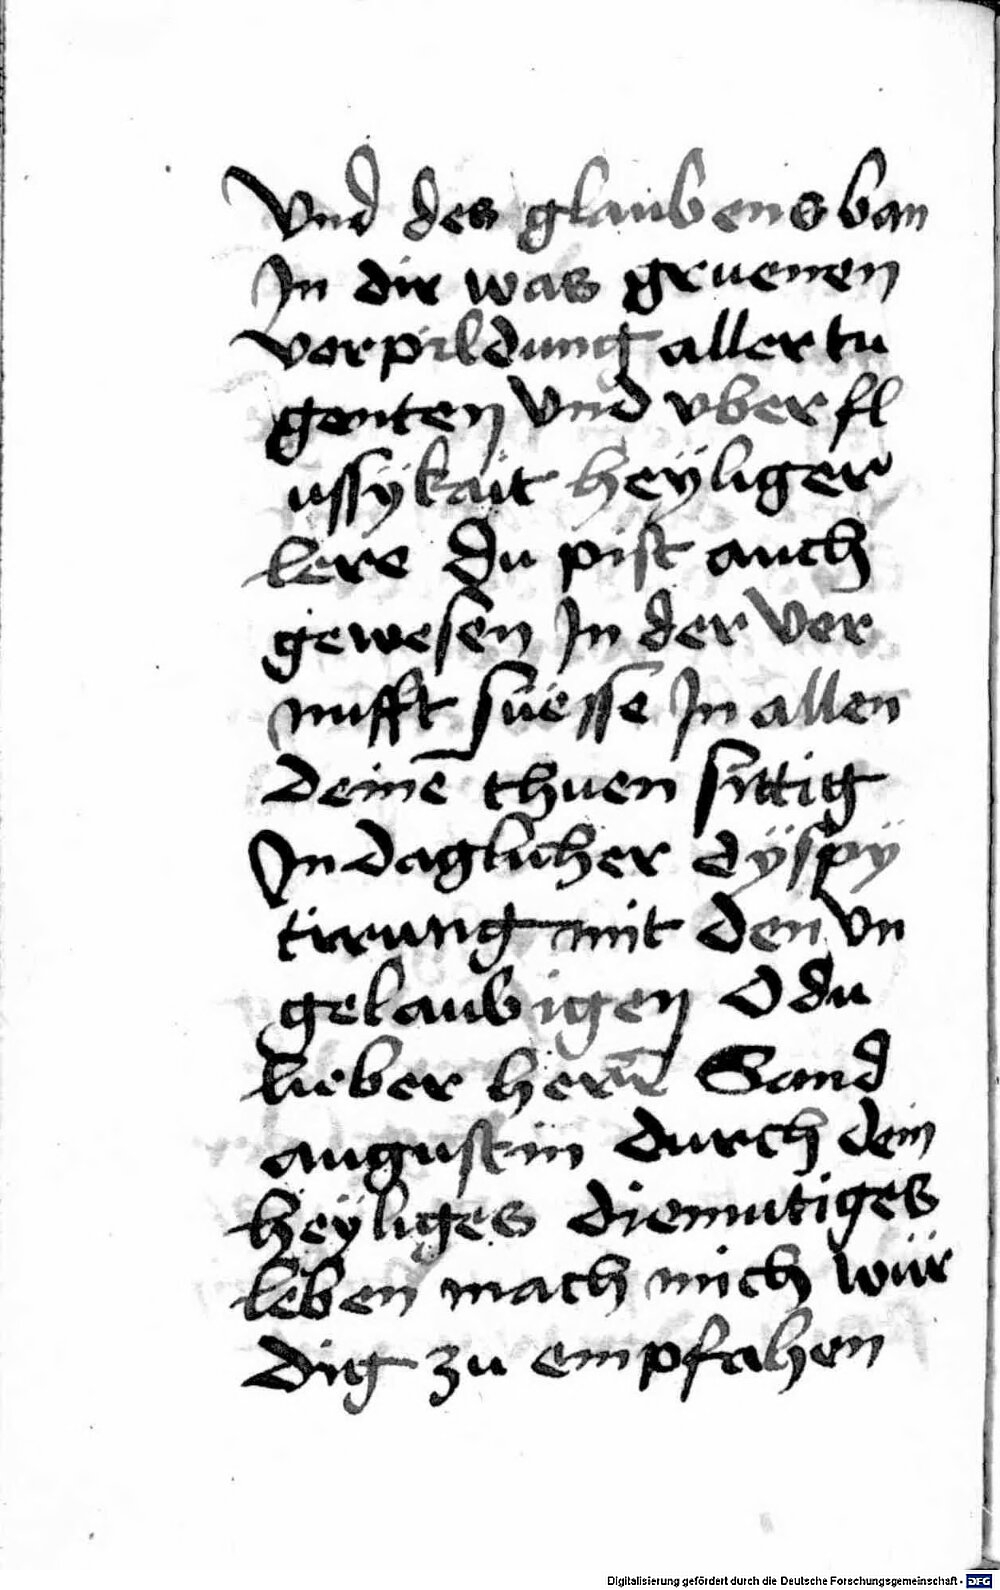 Vnd des glaubens ban
In dir was gruenen
vorpildung aller tu
genten Vnd vber fl
ussÿkait heÿliger
lere du pist auch
gewesen In der Ver
nufft süesse In allen
deinē thuen sittig
In daglicher dÿspÿ
tirung mit den Vn
gelaubigen O du
lieber herr Sand
augustin durch dein
heÿliges diemutiges
leben mach mich wür
dig zu empfahen
Digitalisierung gefördert durch die Deutsche Forschungsgemeinschaft - DFG